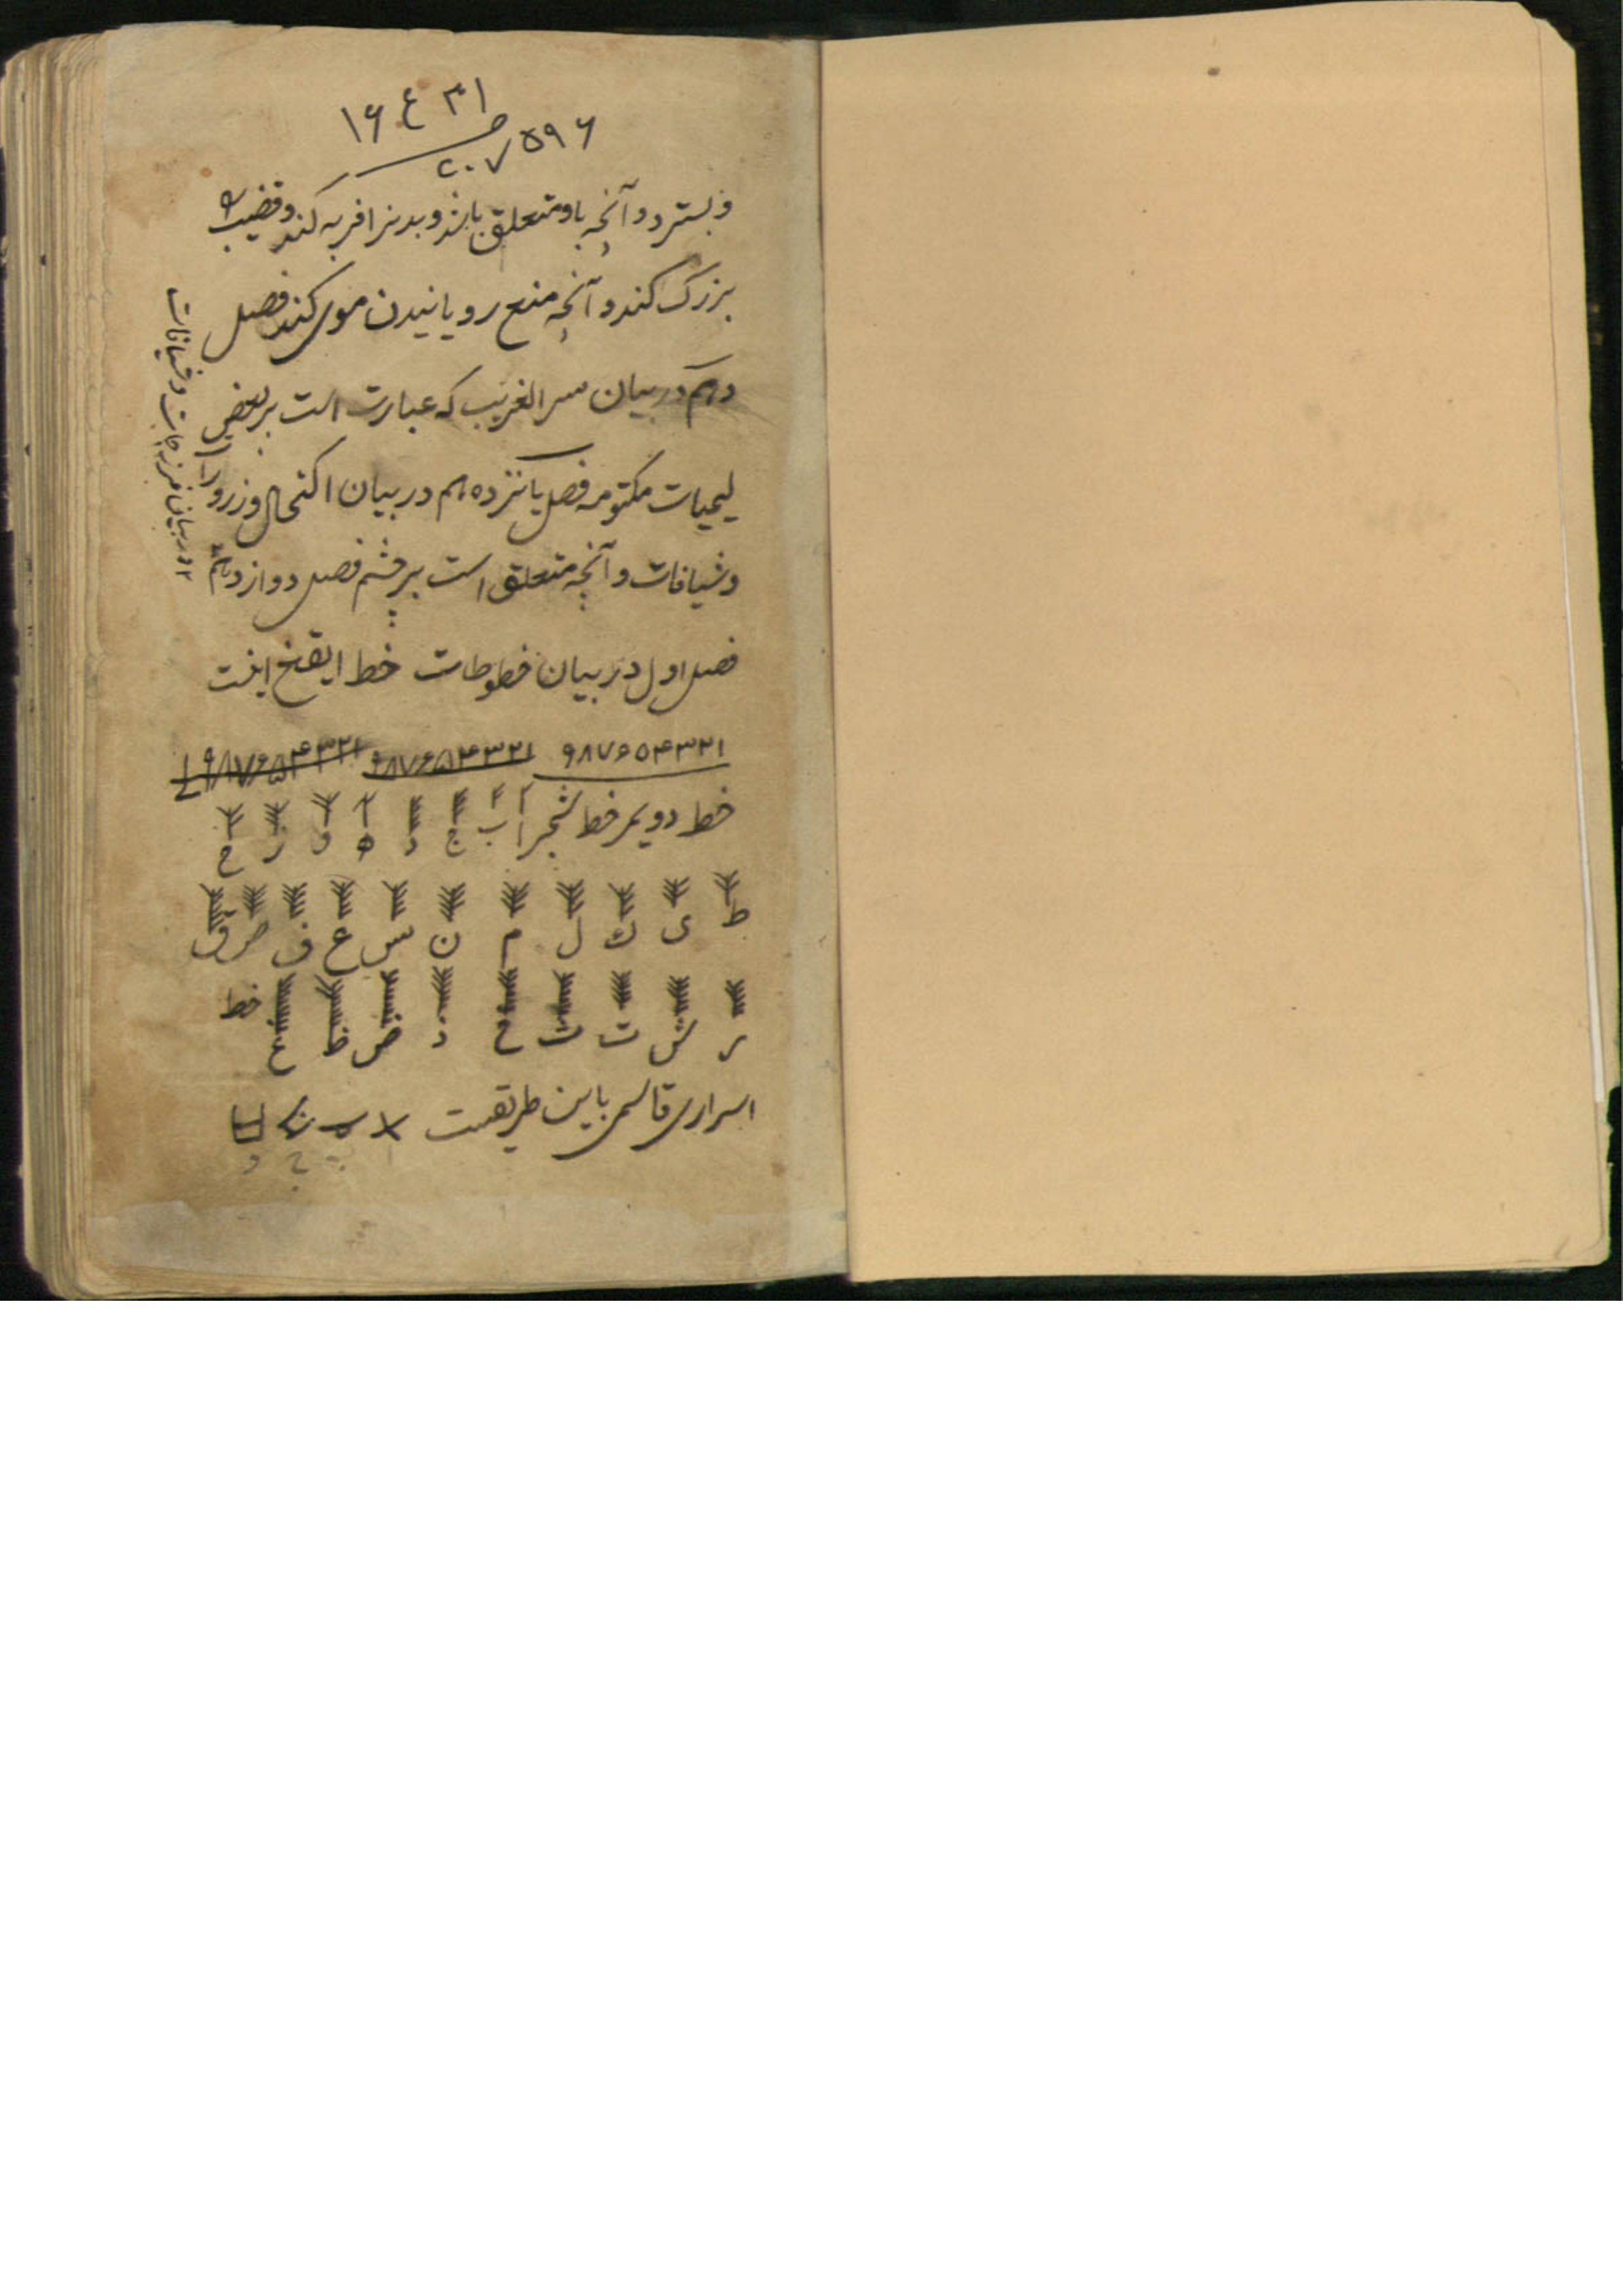 ۱۶ ع ۳۱
۲۰۷ ۵۹۶
و بسترد و آنچه باو متعلق باشد و بدنرا فربه کند و قضیب را
بزرک کند و آنچه منع رویانیدن موی کند فصل
دهم در بیان سر الغریب که عبارت است بر بعضی
لیمیات مکتومه فصل یانزدهم در بیان اکتحال و زرورات
و شیافات و آنچه متعلق است بر چشم فصل دوازدهم
در بیان فرزجات و شیافات
فصل اول در بیان خطوطات خط ایقغ اینست
۱ ۲ ۳ ۴ ۵ ۶ ۷ ۸ ۹ ۱ ۲ ۳ ۴ ۵ ۶ ۷ ۸ ۹ ۱ ۲ ۳ ۴ ۵ ۶ ۷ ۸ ۹
خط دویم خط شجر
ا ب ج د ه و ز ح
ط ی ك ل م ن س ع ف ص ق
ر ش ت ث خ ذ ض ظ غ خط
اسراری قاسمی باین طریقست
ا ب ج د